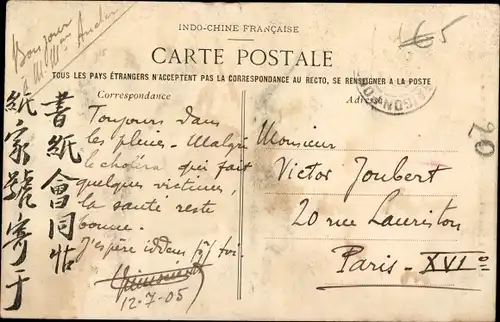 Bonjour
à M. Mme André
INDO-CHINE FRANÇAISE
65
CARTE POSTALE
TOUS LES PAYS ÉTRANGERS N'ACCEPTENT PAS LA CORRESPONDANCE AU RECTO, SE RENSEIGNER A LA POSTE
Correspondance
Toujours dans
les pluies - Malgré
le choléra qui fait
quelques victimes,
la santé reste
bonne.
J'espère idem pr toi.
12-7-05
Adresse
Monsieur
Victor Joubert
20 rue Lauriston
Paris - XVIe
20
書紙會同帖
紙家號寄于